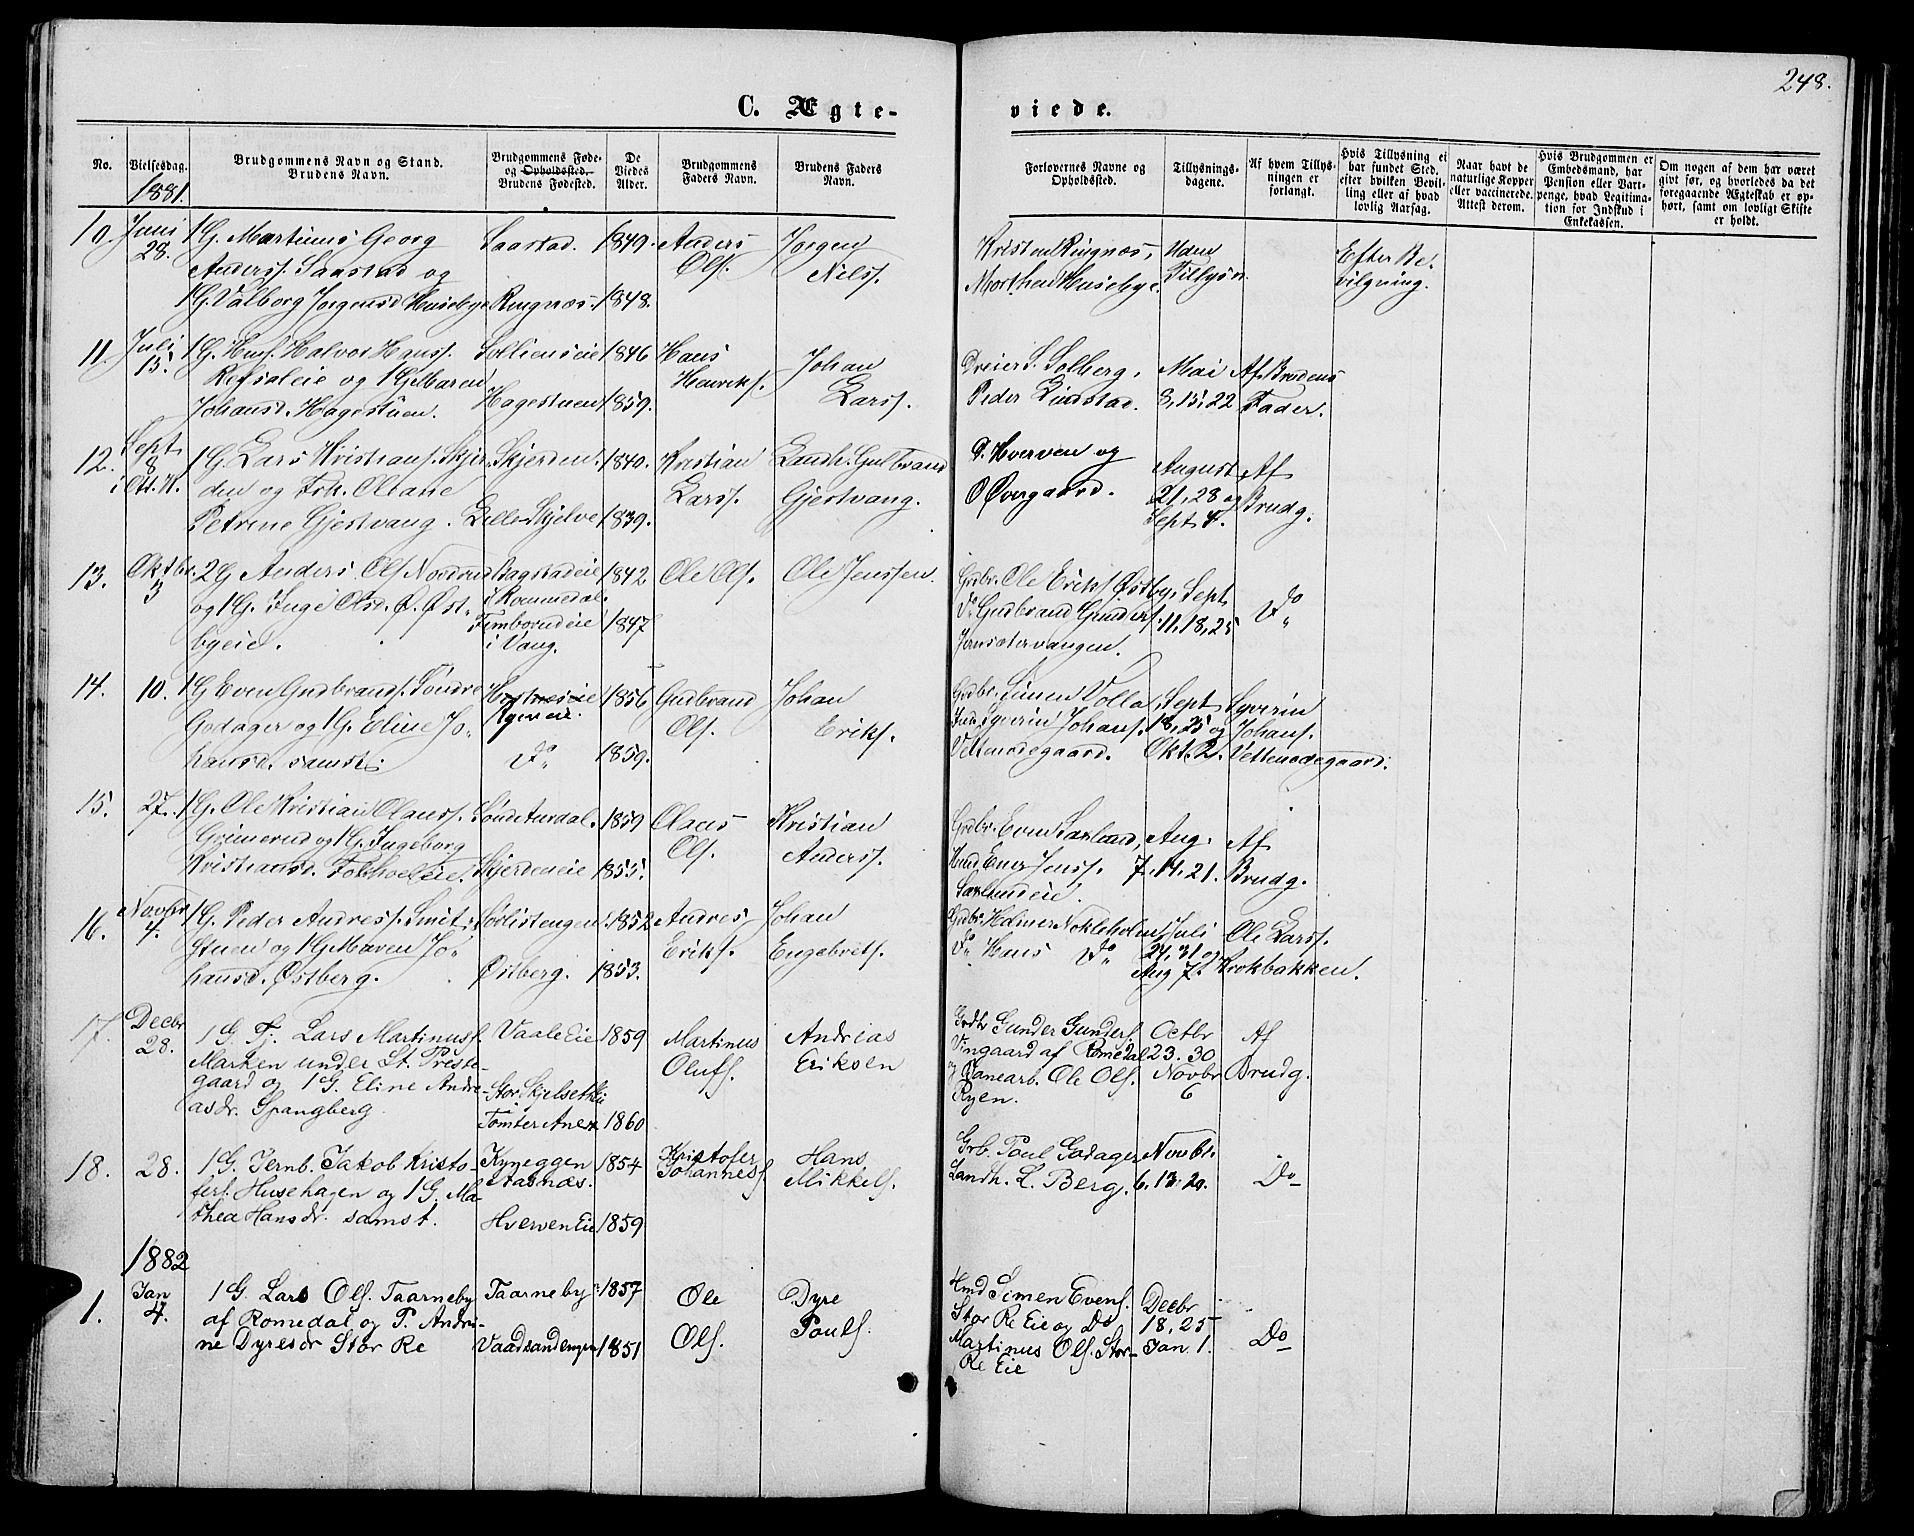 248.
C. Ægte-
viede.
No.
Vielsesdag.
Brudgommens Navn og Stand.
Brudens Navn.
Brudgommens Føde-
og Opholdsted.
Brudens Fødested.
De
Viedes
Alder.
Brudgommens
Faders Navn.
Brudens Faders
Navn.
Forlovernes Navne og
Opholdssted.
Tillysnings-
dagene.
Af hvem Tillys-
ningen er
forlangt.
Hvis Tillysning ei
har fundet Sted,
efter hvilken Bevil-
ling eller af hvad
lovlig Aarsag.
Naar havt de
naturlige Kopper
eller vaccinerede.
Attest derom.
Hvis Brudgommen er
Embedsmand, har
Pension eller Vart-
penge, hvad Legitima-
tion for Indskud i
Enkekassen.
Om nogen af dem har været
givt før, og hvorledes da det
foregaaende Ægteskab er op-
hørt, samt om lovligt Skifte
er holdt.
1881.
10. Juni 28.
1 G. Martinus Georg
Anderss. Saastad og
1 G. Valborg Jørgensd. Huseby
Saastad. 1849.
Ringnæs. 1848.
Anders
Ols.
Jørgen
Nilss.
Kristen Ringnæs,
Morthen Husebye.
Uden
Tillysn.
Efter Be-
vilgning.
11. Juli 15.
1 G. Hmf. Halvor Hanss.
Refsaleie og 1 G. Maren
Johansd. Hagestuen.
Solliemseie 1846
Hagestuen 1859.
Hans
Henriks.
Johan
Larss.
Dreier S. Solberg,
Peder Lindstad.
Mai
8, 15, 22
Af Brudens
Fader.
12. Sept 8
i Ott. K.
1 G. Lars Kristians. Skjer-
den og Frk. Oleane
Petrine Gjestvang.
Skjerden. 1840.
Lille Skjelve 1839.
Kristian
Larss.
Landh. Gulbrand
Gjestvang.
P. Hverven og
O Øvergaard.
August
21, 28 og
Sept 4.
Af
Brudg.
13. Oktbr. 3
2 G Anders Ols. Nordrud
og 1 G. Inge Olsd. Ø. Øst-
byeie.
Bagstadeie 1842
i Rommedal.
Fimborudeie 1847
i Vang.
Ole Ols.
Ole Jenssen.
Grdbr. Ole Eriks. Østby,
Do Gudbrand Gunders.
Jønsætervangen.
Sept
11, 18, 25
Do
14. 10.
1 G Even Gudbrands. Søndre
Godager og 1 G. Eline Jo-
hansd. samst.
Ageveie. 1856
Do 1859.
Gudbrand
Ols.
Johan
Eriks.
Grdbr. Simen Volla,
Syverin Johans.
Vettenodegaard.
Sept
18, 25 og
Okt. 2.
Syverin
Johans.
Vettenodegaard.
15. 27.
1 G. Ole Kristian Olauss.
Grimerud og 1 G. Ingeborg
Kristiansd.
Sønd Aurdal. 1859
Skjerdeneie 1855.
Olaus
Ols.
Kristian
Anderss.
Grdbr. Even Sørlund,
Hmd Ener Jenss.
Sørlundeie.
Aug.
7. 14. 21.
Af
Brudg.
16. Novbr 4.
1 G. Peder Andres. Smit-
stuen og 1 G. Maren Jo-
hansd. Østberg.
Sørlistengen. 1852
Østberg. 1853.
Andres
Eriks.
Johan
Engebrets.
Grdbr. Helmer Nokleholm,
Do Hans Do
Juli
24, 31 og
Aug 7.
Ole Larss.
Krokbakken.
17. Decbr 28.
1 G. Tj. Lars Martinuss.
Marken under St. Preste-
gaard og 1 G. Eline Andre-
asdr. Spangberg.
Vaale Eie 1859
Stor Skjelseth Ei
Tomter Anex 1860
Martinus
Olufs.
Andrias
Eriksen
Grdbr Gunder Gunders.
Vingaard af Romedal
og Banearb. Ole Ols.
Ryen.
Octbr
23. 30
Novbr
6
Af
Brudg.
18. 28.
1 G. Jernb. Jakob Kristo-
fers. Husehagen og 1 G. Ma-
thea Hansdr. samst.
Kyneggen 1854
Strasnæs.
Hverven Eie 1859
Kristofer
Johanness.
Hans
Mikkels.
Grb. Paul Godager
Landh. L. Berg.
Novbr.
6. 13. 20.
Do
1882
1. Jan 4.
1 G. Lars Ols. Taarneby
af Romedal og P. Andri-
ne Dyresdr Stor Re
Taarneby 1857
Vaadsandengen 1851
Ole
Ols.
Dyre
Pouls.
Hmd Simen Evens.
Stor Re Eie og Do
Martinus Ols. Stor-
Re Eie
Decbr
18, 25
Jan. 1.
Do